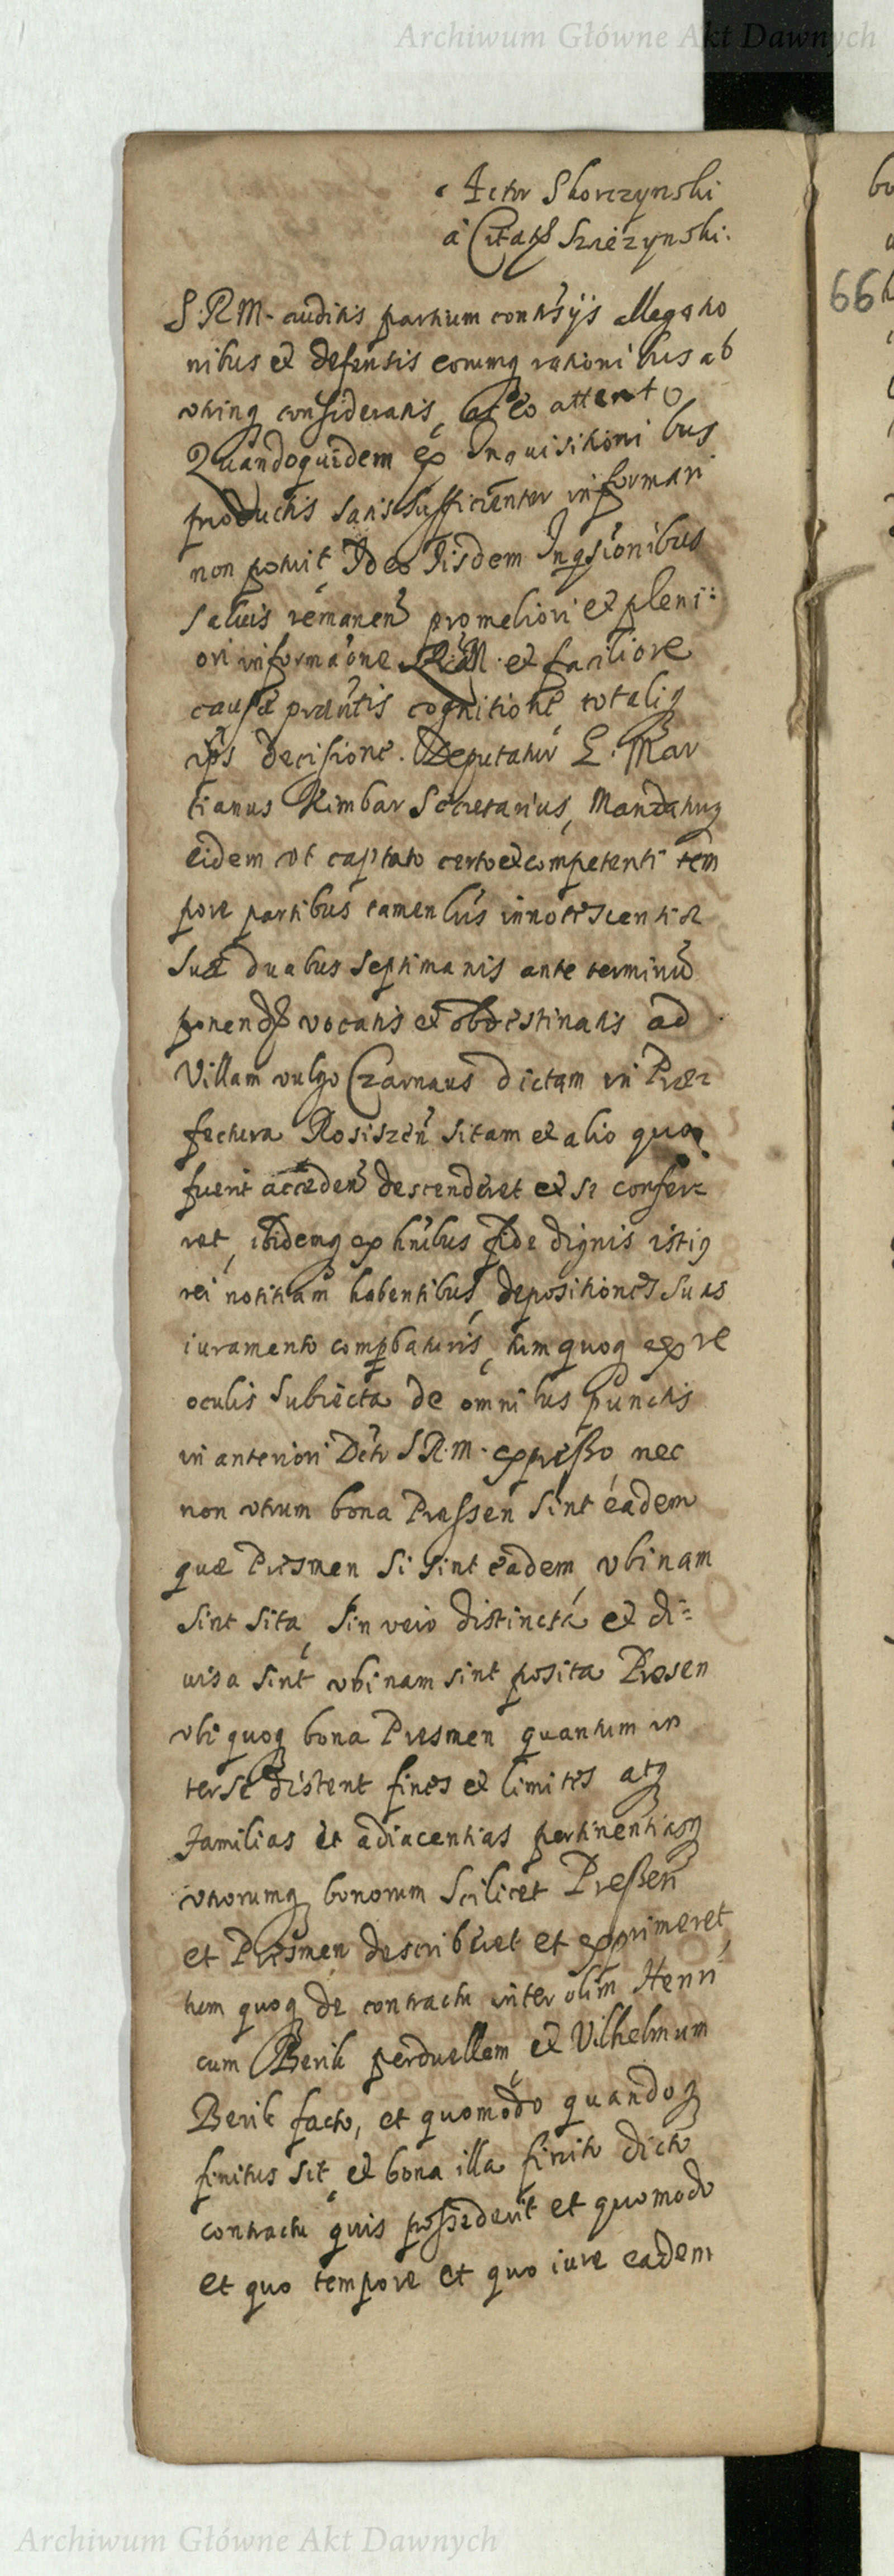 Archiwum Główne Akt Dawnych
Actor Skorczynski
a Citats Szrezynski.
S. R. M. auditis partium contrsijs allegatio
nibus et defensis eorumq rationibus ab
utrinq consideratis, ac eo attento
Quandoquidem ex Inquisitioni bus
productis satis sufficienter informari
non potuit, Ideo Iisdem Inqsionibus
saluis remanen pro meliori et pleni:
ori informaone S.R.M. et faciliore
causæ præntis cognitione, totaliq
ips decisione. Deputatur G. Mar
tianus Kimbar Secretarius, Mandatuq
eidem ut captato certo et competenti tem
pore partibus tamen
suæ duabus septimanis ante terminu
ponend vocatis et obrestinatis ad
Villam vulgo Czarnaus dictam in Præ=
fectura Rosiszen sitam et alio quoq
fuerit acceden descenderet et se confer=
ret, ibidemq ex hnibus fide dignis istiq
rei notitiam habentibus, depositiones suas
iuramento compbaturis, tum quoq ex re
oculis subiecta de omnibus punctis
in anteriori Dcto S R. M. expresso nec
non utrum bona Prassen sint eadem
quæ Presmen si sint eadem, ubinam
sint sita, Sin vero distincta et di=
uisa sint ubinam sint posita Presen
ubi quoq bona Presmen quantum in
ter se distent fines et limites atq
familias et adiacentias pertinentiasq
utrorumq bonorum scilicet Pressen
et Presmen describeret et exprimeret,
tum quoq de contractu inter olim Henri
cum Berik perduellem, et Vilhelmum
Berik facto, et quomodo quandoq
finitus sit, et bona illa finito dicto
contractu quis possederit et quomodo
et quo tempore et quo iure eadem
66
Archiwum Główne Akt Dawnych